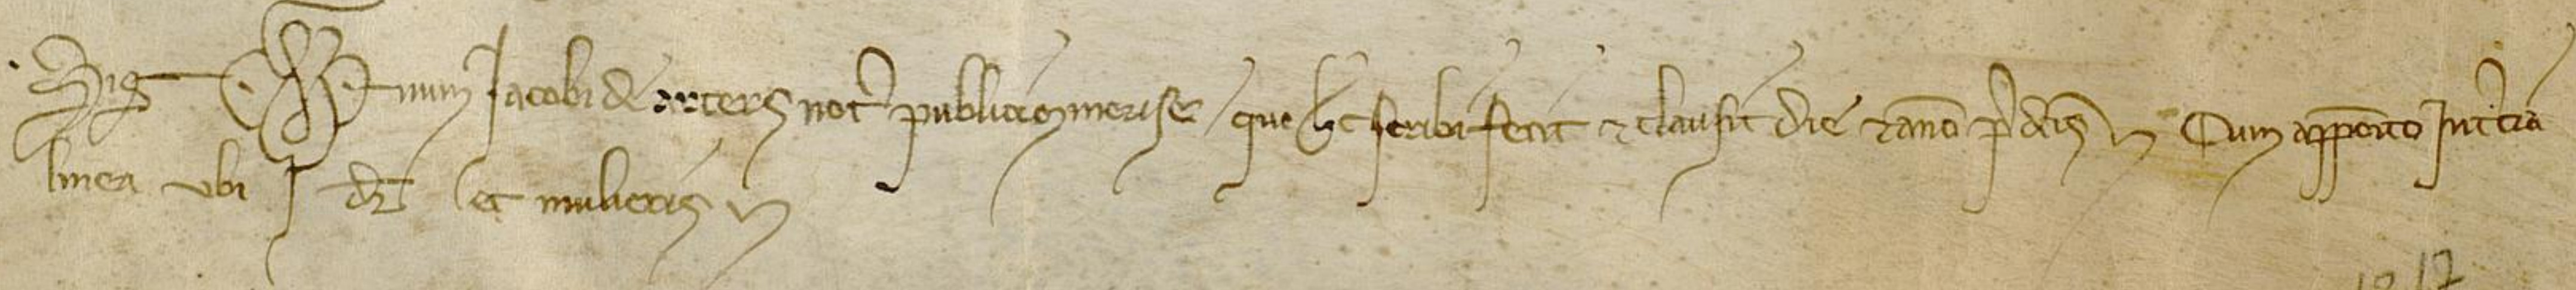 Sig num Jacobi de orters not publici minorise que hec scribi fecit et clausit die et anno predictis Cum apposito in tercia
linea ubi dr et mulieris
1217